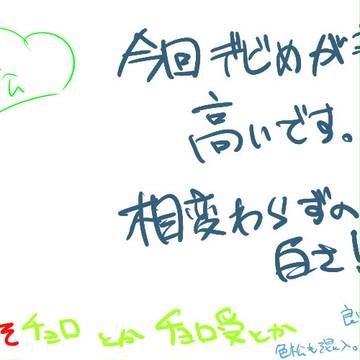 今回ぎじめが
高いです。
相変わらずの
白さ！
そチョロとかチョロ受とか
色松も混入。